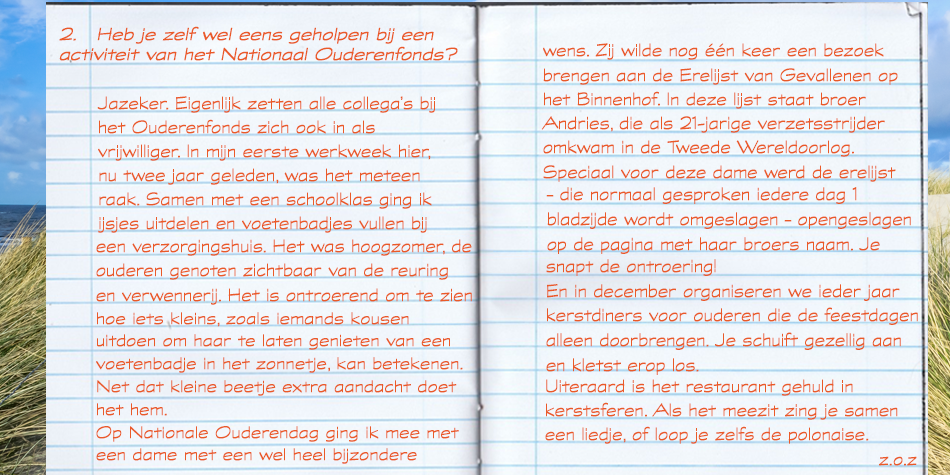 2. Heb je zelf wel eens geholpen bij een
activiteit van het Nationaal Ouderenfonds?
Jazeker. Eigenlijk zetten alle collega's bij
het Ouderenfonds zich ook in als
vrijwilliger. In mijn eerste werkweek hier,
nu twee jaar geleden, was het meteen
raak. Samen met een schoolklas ging ik
ijsjes uitdelen en voetenbadjes vullen bij
een verzorgingshuis. Het was hoogzomer, de
ouderen genoten zichtbaar van de reuring
en verwennerij. Het is ontroerend om te zien
hoe iets kleins, zoals iemands kousen
uitdoen om haar te laten genieten van een
voetenbadje in het zonnetje, kan betekenen.
Net dat kleine beetje extra aandacht doet
het hem.
Op Nationale Ouderendag ging ik mee met
een dame met een wel heel bijzondere
wens. Zij wilde nog één keer een bezoek
brengen aan de Erelijst van Gevallenen op
het Binnenhof. In deze lijst staat broer
Andries, die als 21-jarige verzetsstrijder
omkwam in de Tweede Wereldoorlog.
Speciaal voor deze dame werd de erelijst
- die normaal gesproken iedere dag 1
bladzijde wordt omgeslagen - opengeslagen
op de pagina met haar broers naam. Je
snapt de ontroering!
En in december organiseren we ieder jaar
kerstdiners voor ouderen die de feestdagen
alleen doorbrengen. Je schuift gezellig aan
en kletst erop los.
Uiteraard is het restaurant gehuld in
kerstsferen. Als het meezit zing je samen
een liedje, of loop je zelfs de polonaise.
z.o.z